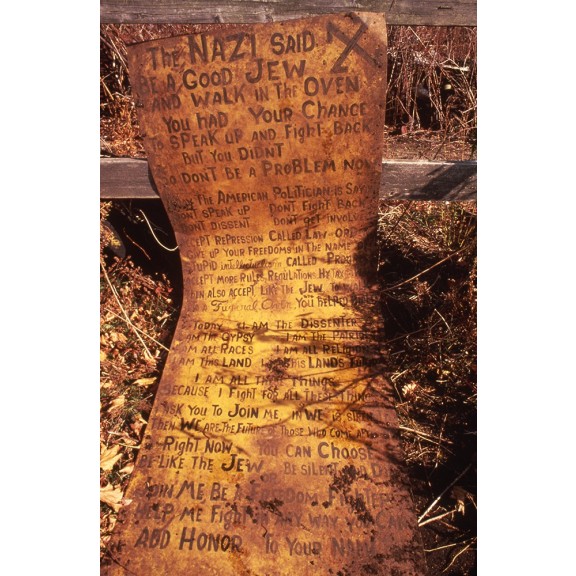 The NAZI SAID
BE A GOOD JEW
AND WALK IN THE OVEN
YOU HAD YOUR CHANCE
TO SPEAK UP AND FIGHT BACK
BUT YOU DIDNT
SO DONT BE A PROBLEM NOW
THE AMERICAN POLITICIAN IS SAY
DONT SPEAK UP DONT FIGHT BACK
DONT DISSENT DONT GET INVOLVE
ACCEPT REPRESSION CALLED LAW ORD
GIVE UP YOUR FREEDOMS IN THE NAME
STUPID CALLED PROG
ACCEPT MORE RULES REGULATIONS
CAN ALSO ACCEPT LIKE THE JEW TO
a Funeral YOU HELPED
TODAY I AM THE DISSENTER
I AM THE GYPSY I AM THE
I AM ALL RACES I AM ALL RELIG
I AM THIS LAND THIS LANDS
I AM ALL THESE THINGS
BECAUSE I FIGHT FOR ALL THESE THINGS
ASK YOU TO JOIN ME, IN WE IS
THEN WE ARE THE FUTURE OF THOSE WHO COME
RIGHT NOW YOU CAN CHOOSE
BE LIKE THE JEW BE SILENT AND
JOIN ME BE A FREEDOM FIGHTER
HELP ME FIGHT IN ANY WAY YOU CAN
ADD HONOR TO YOUR NAME